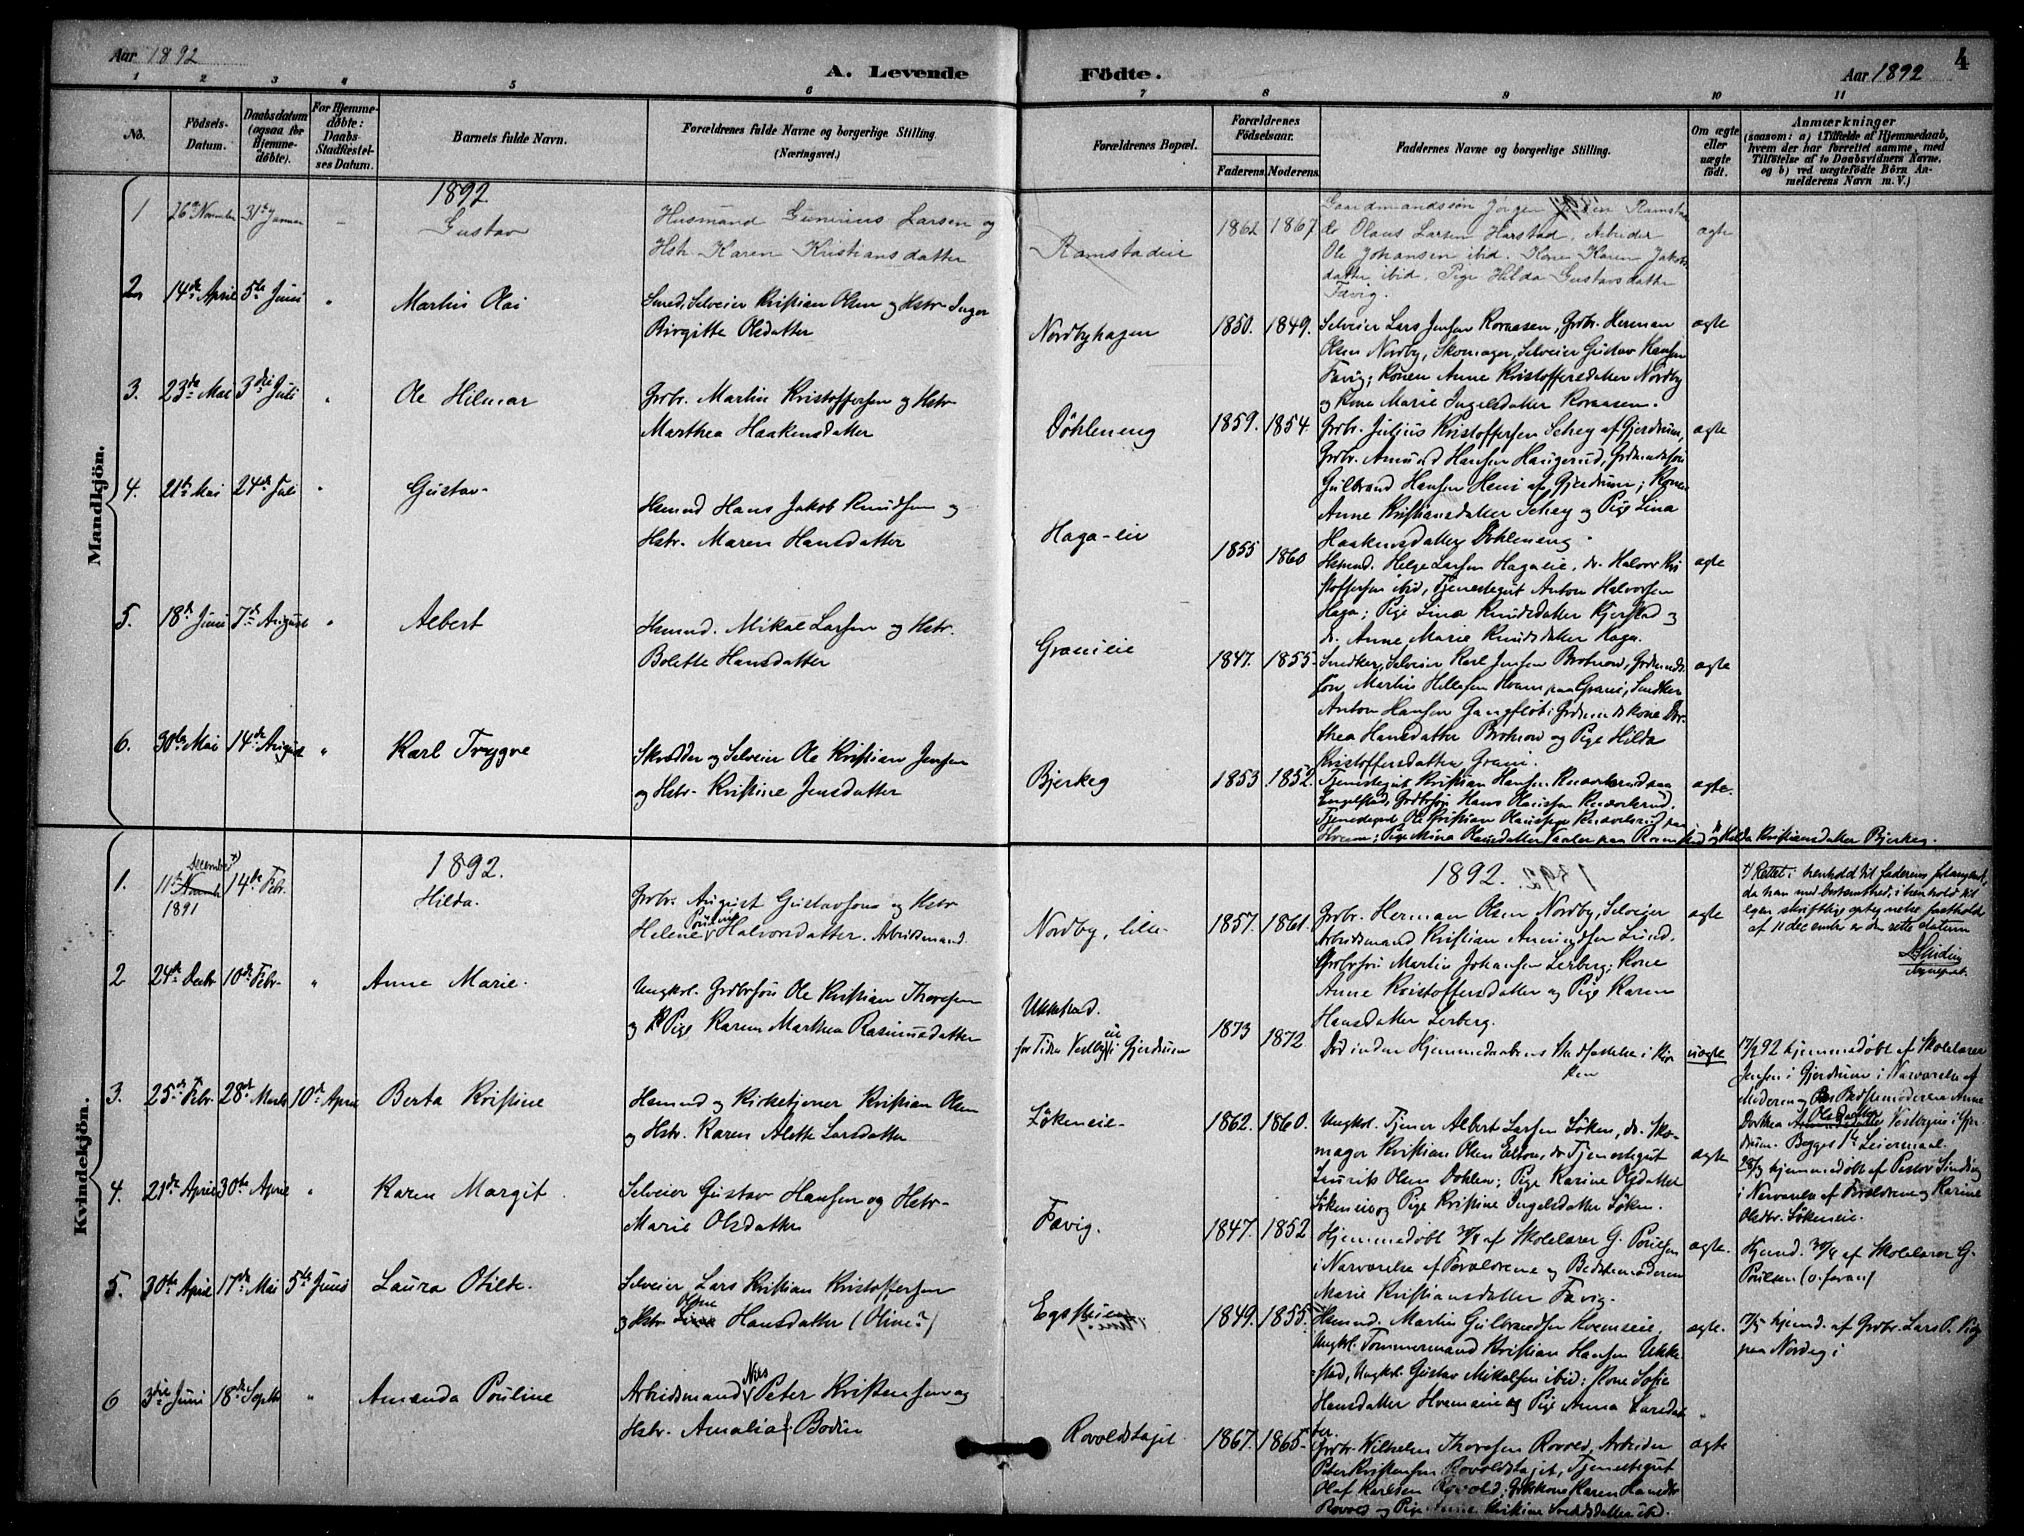 Aar 1892
A. Levende Fødte.
Aar 1892
4
1 2 3 4 5 6 7 8 9 10 11
No.
Fødsels-
Datum.
Daabsdatum
(ogsaa for
Hjemme-
døbte).
For Hjemme-
døbte:
Daabs-
Stadfæstel-
ses Datum.
Barnets fulde Navn.
Forældrenes fulde Navne og borgerlige Stilling.
(Næringsvei.)
Forældrenes Bopæl.
Forældrenes
Fødselsaar.
Faderens. Moderens.
Faddernes Navne og borgerlige Stilling.
Om ægte
eller
uægte
født.
Anmærkninger
(saasom: a) i Tilfælde af Hjemmedaab,
hvem der har forrettet samme, med
Tilføielse af to Daabsvidners Navne,
og b) ved uægtefødte Børn An-
melderens Navn m. V.)
Mandkjön.
1892
1 26de Novembr 31te Januar - Gustav
Husmand Gunerius Larsen og
Hstr. Karen Kristiansdatter
Ramstadeie
1862 1867
Gaardmandssøn Jørgen Ramstad
dr Olaus Larsen Harstad. Arbeider
Ole Johansen ibid. Kone Karen Jakobs
datter ibid. Pige Hilda Gustavsdatter
Favig.
ægte
2 14de April 5te Juni " Martin Olai
Smed, Selveier Kristian Olsen og Hstr. Inger
Birgitte Olsdatter
Nordbyhagen
1850. 1849.
Selveier Lars Jensen Roraasen, Grdbr. Herman
Olsen Nordby, Skomager, Selveier Gustav Hansen
Favig; Konen Anne Kristoffersdatter Nordby
og Kone Marie Ingelsdatter Roraasen.
ægte
3. 23de Mai 3die Juli " Ole Hilmar
Grdbr. Martin Kristoffersen og Hstr
Marthea Haakensdatter
Döhleneng
1859. 1854
Grdbr. Julius Kristoffersen Schey af Gjerdrum,
Grdbr. Amund Hansen Haugerud, Grdmandssøn
Gulbrand Hansen Heni af Gjerdrum; Konen
Anne Kristiansdatter Schey og Pige Lina
Haakensdatter Döhleneng.
ægte
4. 21de Mai 24de Juli " Gustav
Hsmnd Hans Jakob Knudsen og
Hstr. Maren Hansdatter
Haga-eie
1855 1860
Hsmnd. Helge Larsen Hagaeie, dr. Halvor Kri
stoffersen ibid, Tjenestegut Anton Halvorsen
Haga; Pige Lina Knudsdatter Kjerstad og
dr. Anne Marie Knudsdatter Haga.
ægte
5. 18de Juni 7de August " Albert
Hsmnd. Mikal Larsen og Hstr.
Bolette Hansdatter
Granieie
1847. 1855
Snedker, Selveier Karl Jensen Brotnow, Grdmands
søn Martin Hellesen Hvam paa Grani, Snedker
Anton Hansen Gangflöt; Grdmandskone Dor-
thea Hansdatter Brotnow og Pige Hilda
Kristoffersdatter Grani.
ægte
6. 30te Mai 14de August " Karl Trygve
Skrædder og Selveier Ole Kristian Jensen
og Hstr. Kristine Jensdatter
Bjerkeg
1853 1852
Tjenestegut Kristian Hansen Knaverud paa
Engelstad, Grdbrsøn Hans Olaussen Knaverud.
Tjenestegut Ole Kristian Olaussen Knaverud paa
Hvam; Pige Mina Olausdatter og Hilda Kristiansdatter Bjerkeg.
ægte.
Kvindekjön.
1892.
1. 11te December
1891 14de Febr. Hilda.
Grdbr. August Gustavson og Hstr
Helene Pouline Halvorsdatter. Arbeidsmand.
Nordby, lille
1857. 1861.
1892.
Grdbr. Herman Olsen Nordby, Selveier
Arbeidsmand Kristian Amundsen Lund.
Grdbrsøn Martin Johansen Lerberg; Kone
Anne Kristoffersdatter og Pige Karen
Hansdatter Lerberg.
ægte
*) Rettet i henhold til faderens forlangende,
da han med bestemthed, i henhold til
egen skriftlige optegnelse fastholdt
at 11 december er den rette datum
Sinding
Sogneprest.
2 24de Decbr 10de Febr. " Anne Marie.
Ungkrl. Grdbrsøn Ole Kristian Thoresen
og Pige Karen Marthea Rasmusdatter
Ukkestad.
for Tiden Vestby eie i Gjerdrum
1873 1872
Död inden Hjemmedaabens Stadfæstelse i Kir
ken
uægte
17/1 92 hjemmedøbt af Skolelærer
Jensen i Gjerdrum i Nærværelse af
Moderen og Bedstemoderen Anne
Dorthea Olsdatter Vestbyeie i Gjer
drum. Begges 1ste Leiermaal.
3. 25de Febr. 28de Marts 10de April Berta Kristine
Hsmnd og Kirketjener Kristian Olsen
og Hstr. Karen Alette Larsdatter
Lökeneie
1862. 1860.
Ungkrl. Tjener Albert Larsen Löken, dr. Sko-
mager Kristian Olsen Elton, dr Tjenestegut
Laurits Olsen Dohlen; Pige Karine Olsdatter
Lökeneie og Pige Kristine Ingelsdatter Löken.
ægte
28/3 hjemmedøbt af Pastor Sinding
i Nærværelse af Forældrene og Karine
Olsdtr. Lökeneie.
4. 21de April 30te April " Karen Margit.
Selveier Gustav Hansen og Hstr-
Marie Olsdatter
Favig.
1847. 1852
Hjemmedöbt 30/4 af Skolelærer G. Poulsen
i Nærværelse af Forældrene og Bedstemoderen
Marie Kristiansdatter Favig.
ægte.
Hjemd. 30/4 af Skolelærer G.
Poulsen (s. foran)
5. 30te April 17de Mai 5te Juni Laura Otilde.
Selveier Lars Kristian Kristoffersen
og Hstr Oline Hansdatter (Oline?)
1849. 1855
Hsmnd. Martin Gulbrandsen Hvemseie,
Ungkrl. Tømmermand Kristian Hansen Ukke-
stad, Ungkrl. Gustav Mikalsen ibid; Kone Sofie
Hansdatter Hvemseie og Pige Anna Larsdat
ter.
ægte.
17/5 hjemd. af Grdbr. Lars O.
paa Nordeg i
6 3die Juni 18de Septbr " Amanda Pouline
Arbeidsmand Nils Peter Kristensen og
Hstr. Amalia Bodin
Rovoldstajet
1867. 1865
Grdbr. Wilhelm Thoresen Rovold, Arbeider
Peter Kristensen Rovoldstajet, Tjenestegut
Olaf Karlsen Rovold; Grdbrkone Karen Hansdtr
Rovold og Pige Anne Kristine ibid.
ægte